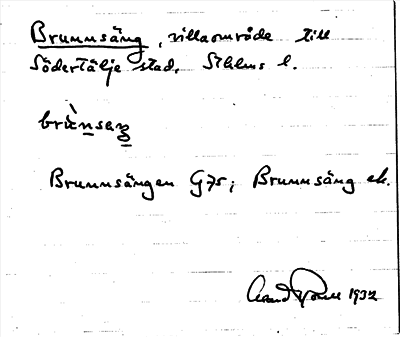 Brunnsäng, villaområde till
Södertälje stad. Sthlms l.
brùnsaŋ
Brunnsängen G75; Brunnsäng ek.
1932